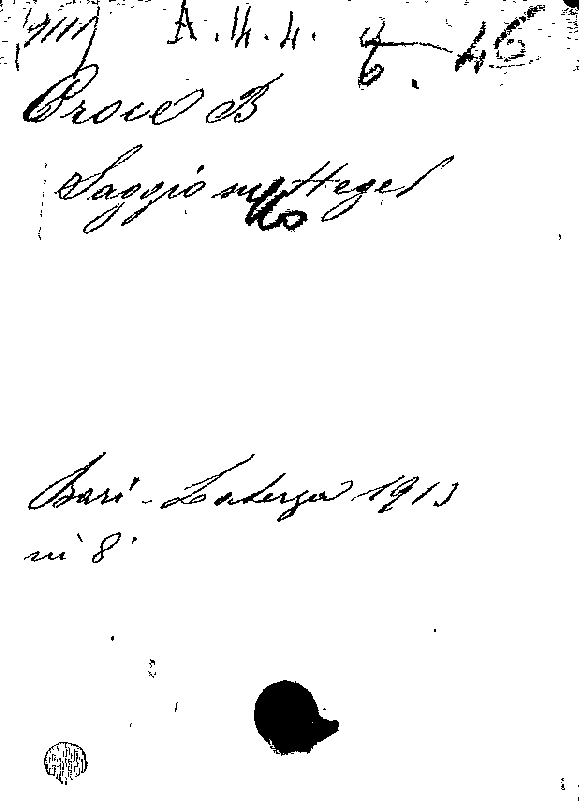 A.4.4. 6. 46
Croce B
Saggio sullo Hegel
Bari - Laterza 1913
in 8°